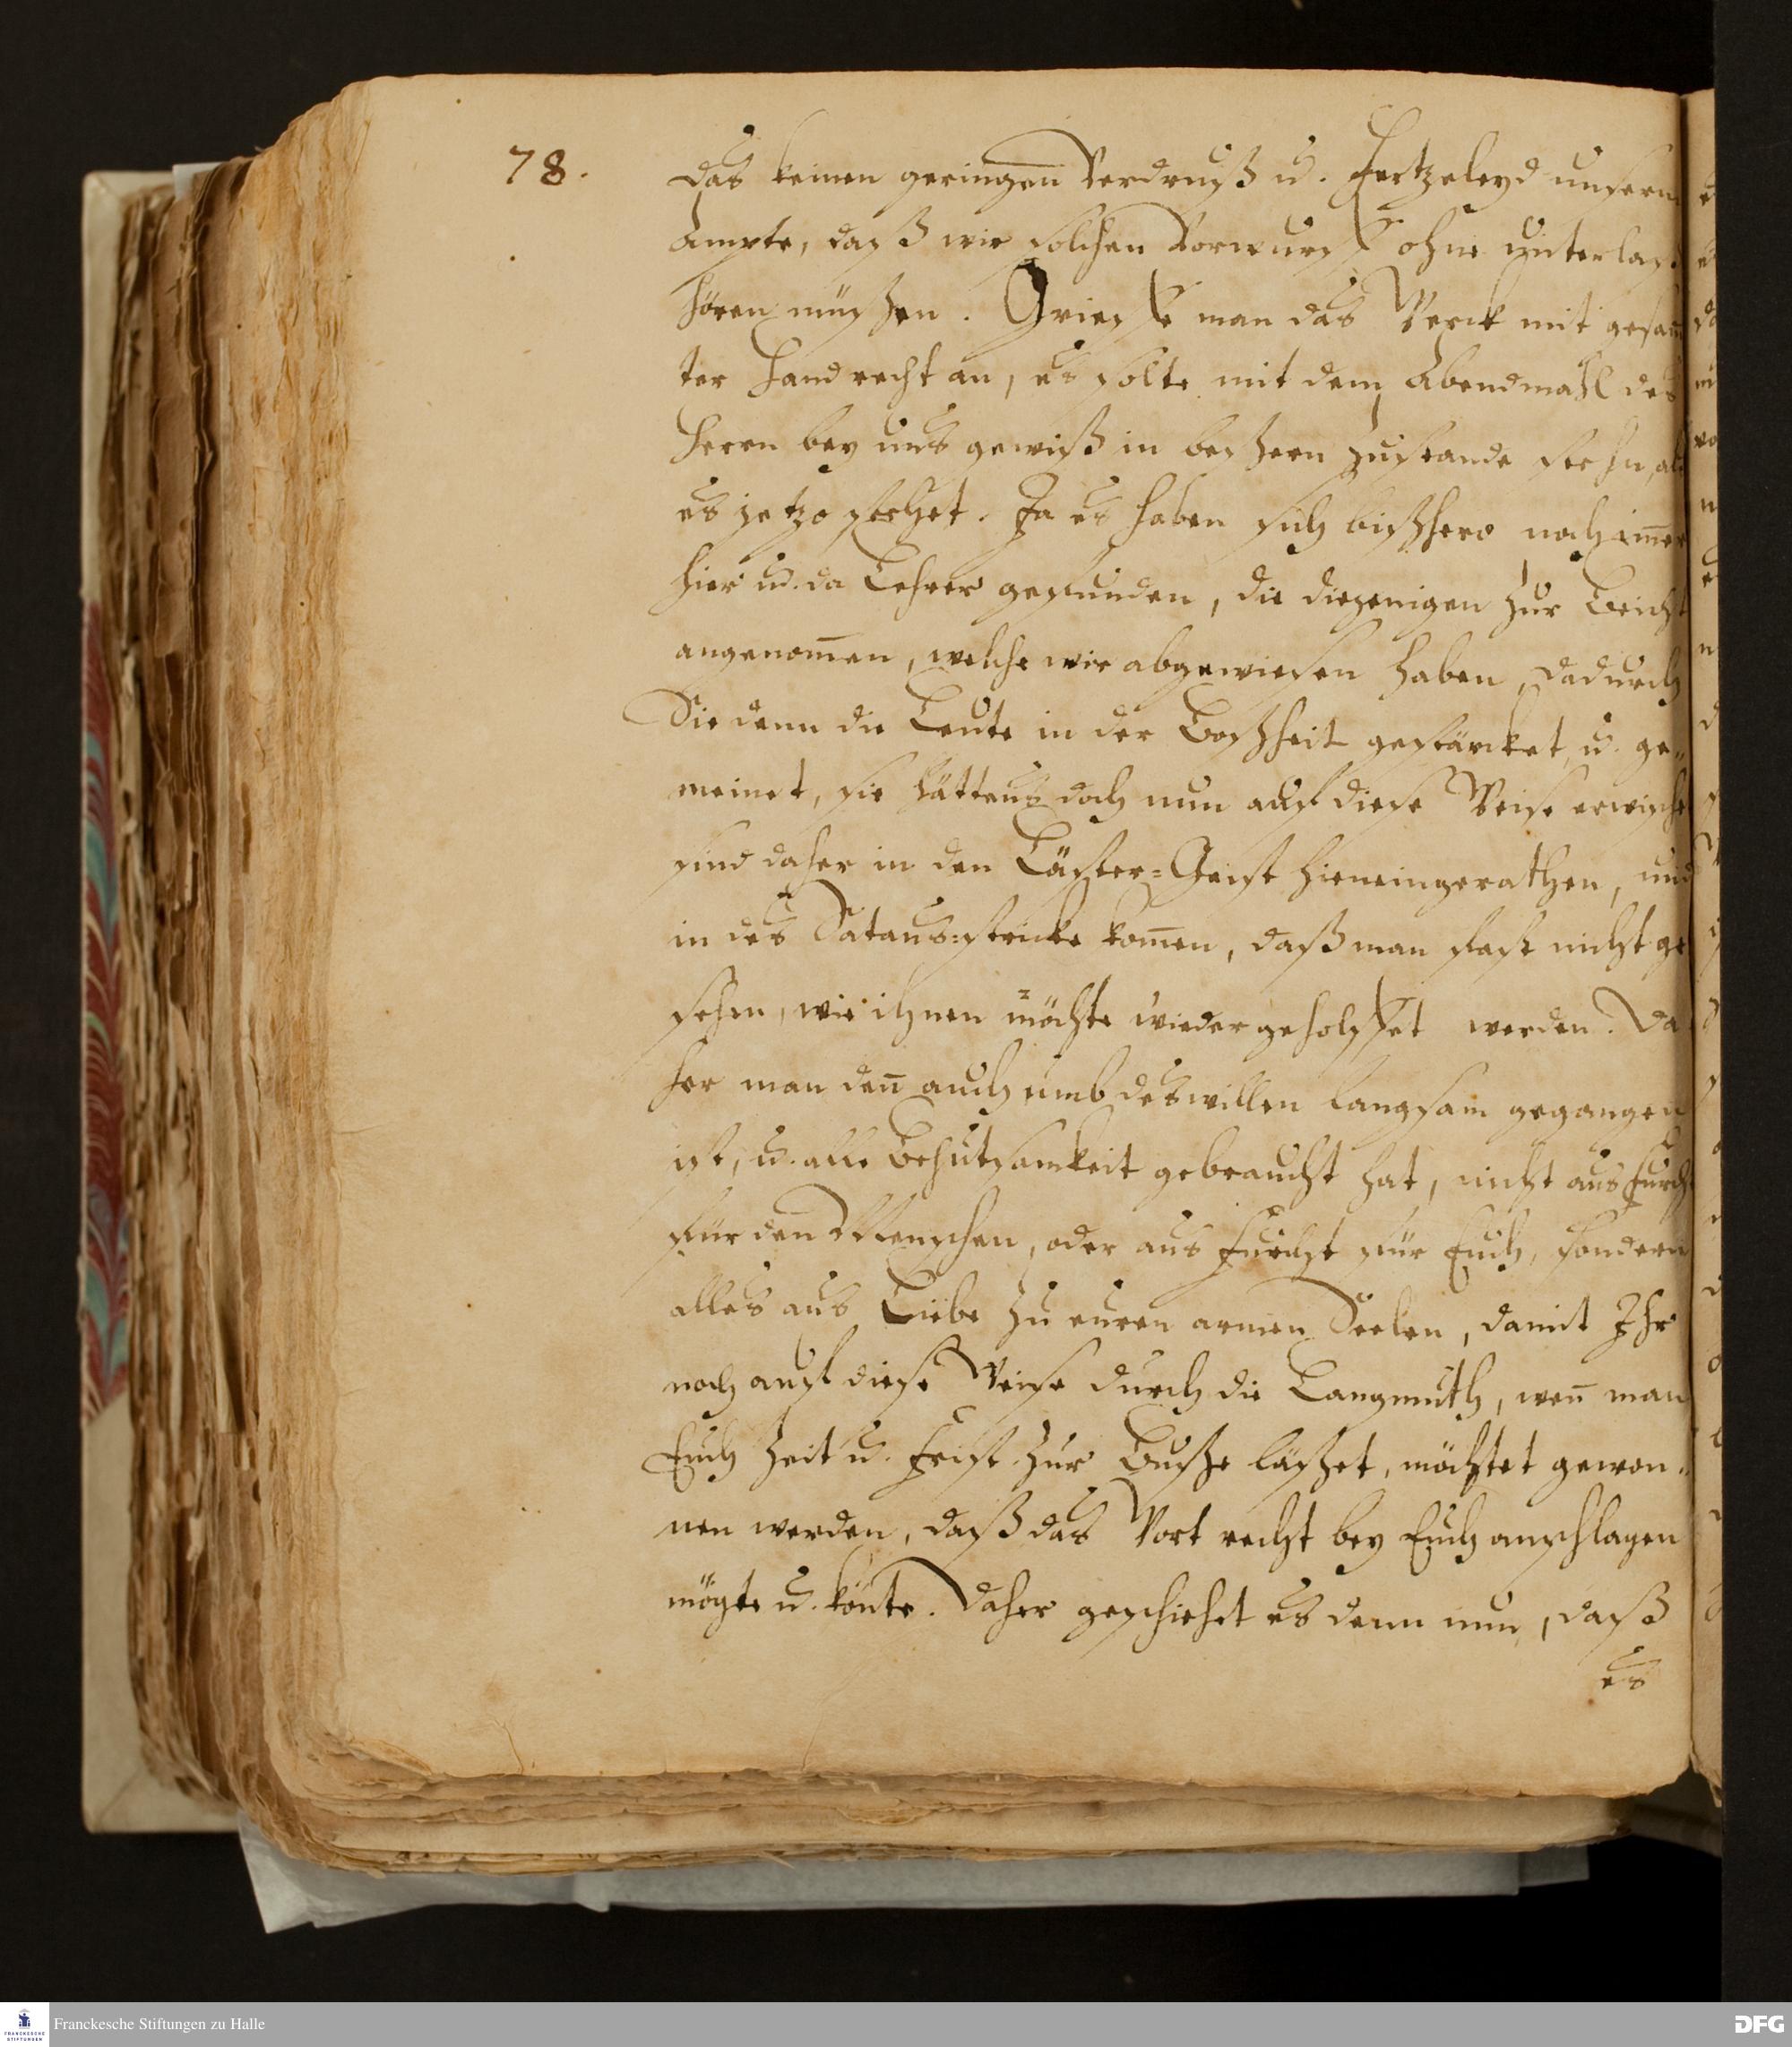 78.
das keinen geringen Verdruß u. Hertzeleyd unserm
Ampte, daß wir solchen Vorwurff ohne unterlaß
hören müßen. Grieffe man das Werck mit gesam̅
ter Hand recht an, es solte mit dem Abendmahl des
Herrn bey uns gewiß in beßern zustande stehn, als
es jetzo stehet. Ja es haben sich bißhero noch im̅er
hier u. da Lehrer gefunden, die diejenigen zur Beicht
angenom̅en, welche wir abgewiesen haben, dadurch
Sie denn die Leute in der Boßheit gestärcket, u. ge„
meinet, sie hättens doch nun auf diese Weise erwischt
sind daher in den Läster-Geist hineingerathen, und
in des Satans-stricke kom̅en, daß man fast nicht ge
sehen, wie ihnen möchte wieder geholffet werden. Da
her man den̅ auch umb deswillen langsam gegangen
ist, u. alle Behutsamkeit gebraucht hat, nicht aus furcht
für den Menschen, oder aus furcht für Euch, sondern
alles aus Liebe zu euren armen Seelen, damit Ihr
noch auf diese Weise durch die Langmuth, wen̅ man
Euch Zeit u. Frist zur Buße läßet, möchtet gewon„
nen werden, daß das Wort recht bey Euch anschlagen
mögte u. könte. Daher geschiehet es denn nun, daß
es
Franckesche Stiftungen zu Halle
DFG